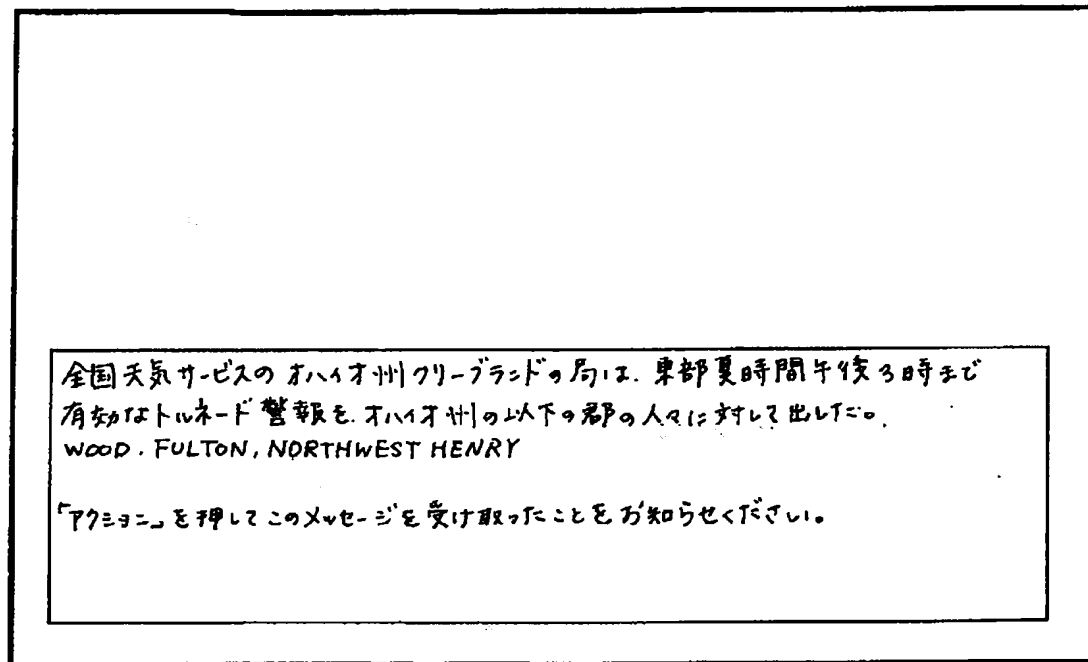 全国天気サービスの オハイオ州クリーブランドの局は、東部夏時間午後3時まで
有効なトルネード警報を、オハイオ州の以下の郡の人々に対して出した。
WOOD, FULTON, NORTHWEST HENRY
「アクション」を押してこのメッセージを受け取ったことをお知らせください。